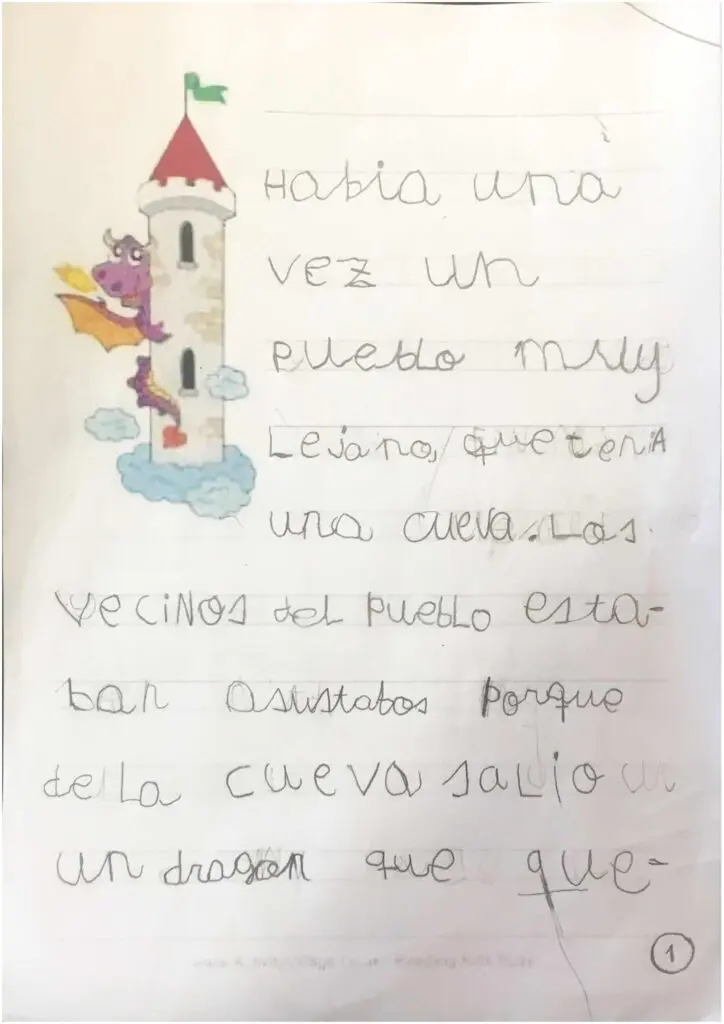 Habia una
vez un
pueblo muy
Lejano, que teniA
una cueva. Los
veciNos del pueblo esta-
ban asustabos porque
de La cueva saLio un
un dragon que que-
1